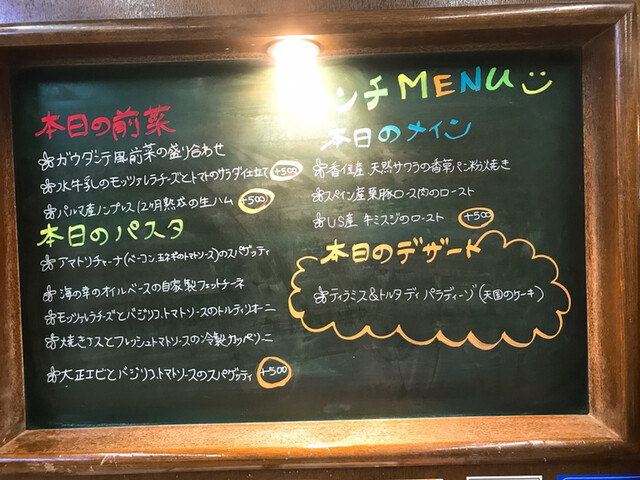 本日の前菜
ガウダンテ風前菜の盛り合わせ
水牛乳のモッツァレラチーズとトマトのサラダ仕立て +500
パルマ産ノンプレス12ヶ月熟成の生ハム +500
本日のパスタ
アマトリチャーナ(ベーコン、玉ネギのトマトソース)のスパゲッティ
海の幸のオイルベースの自家製フェットチーネ
モッツァレラチーズとバジリコ、トマトソースのトルティリオーニ
焼きナスとフレッシュトマトソースの冷製カッペリーニ
大正エビとバジリコ、トマトソースのスパゲッティ +500
ンチMENU
本日のメイン
香住産 天然サワラの香草パン粉焼き
スペイン産栗豚ロース肉のロースト
US産 牛ミスジのロースト +500
本日のデザート
ティラミス&トルタ ディ パラディーゾ(天国のケーキ)